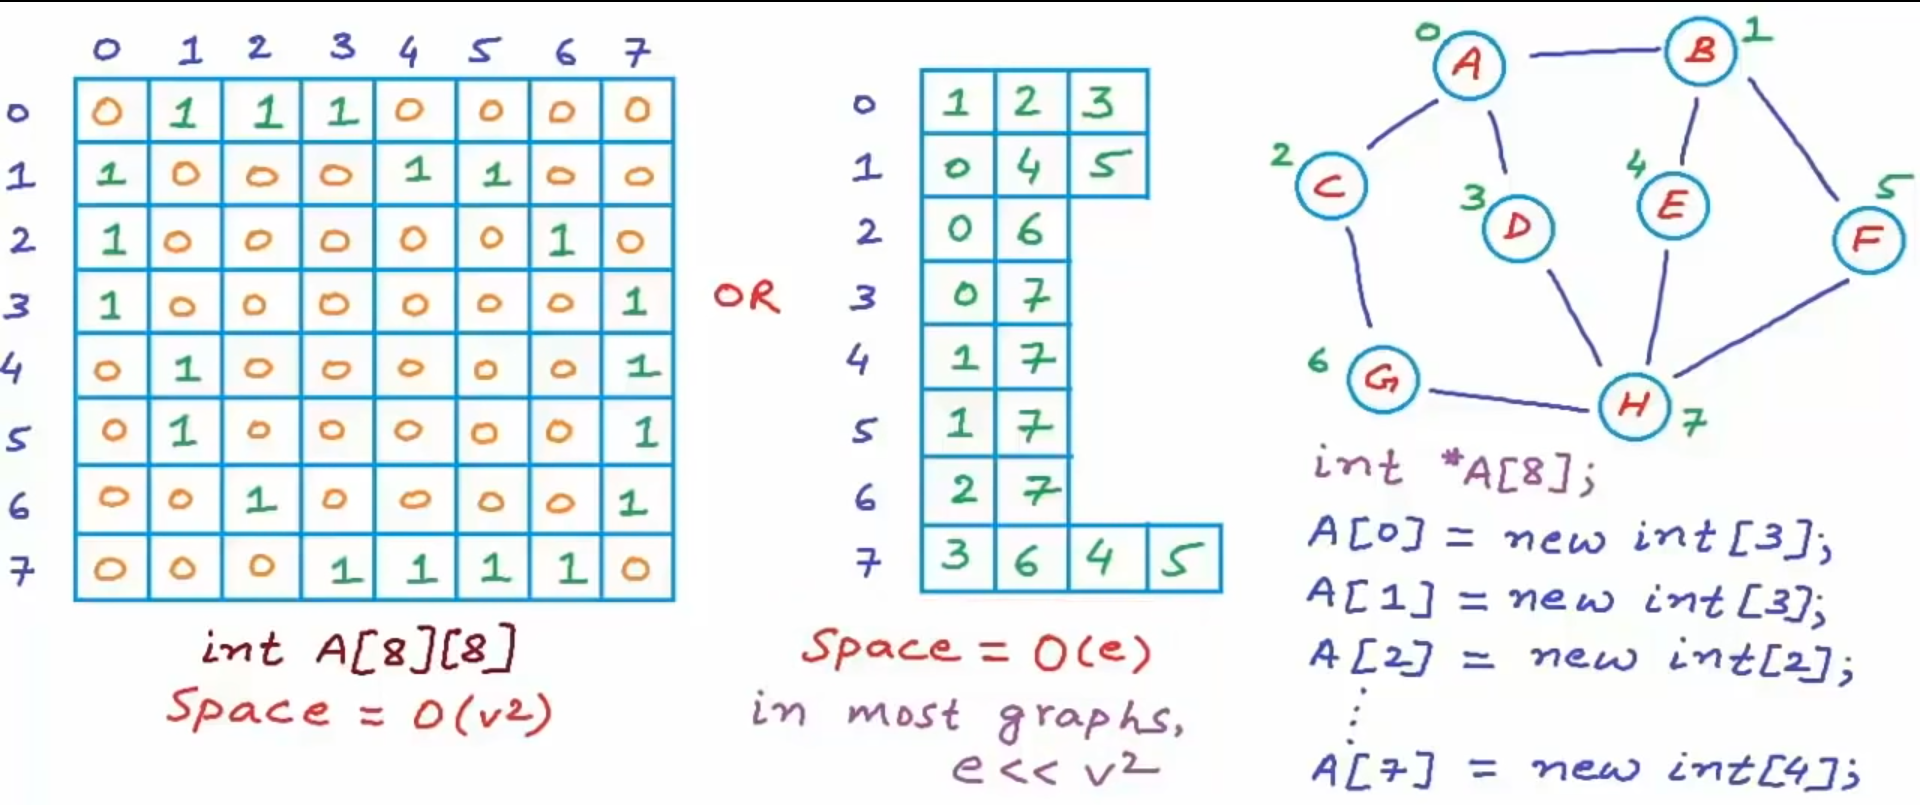 0 1 2 3 4 5 6 7
0 0 1 1 1 0 0 0 0
1 1 0 0 0 1 1 0 0
2 1 0 0 0 0 0 1 0
3 1 0 0 0 0 0 0 1
4 0 1 0 0 0 0 0 1
5 0 1 0 0 0 0 0 1
6 0 0 1 0 0 0 0 1
7 0 0 0 1 1 1 1 0
int A[8][8]
Space = O(v2)
OR
0 1 2 3
1 0 4 5
2 0 6
3 0 7
4 1 7
5 1 7
6 2 7
7 3 6 4 5
Space = O(e)
in most graphs,
e << v2
0 A B 1
2 C 3 D 4 E 5 F
6 G H 7
int *A[8];
A[0] = new int[3];
A[1] = new int[3];
A[2] = new int[2];
A[7] = new int[4];